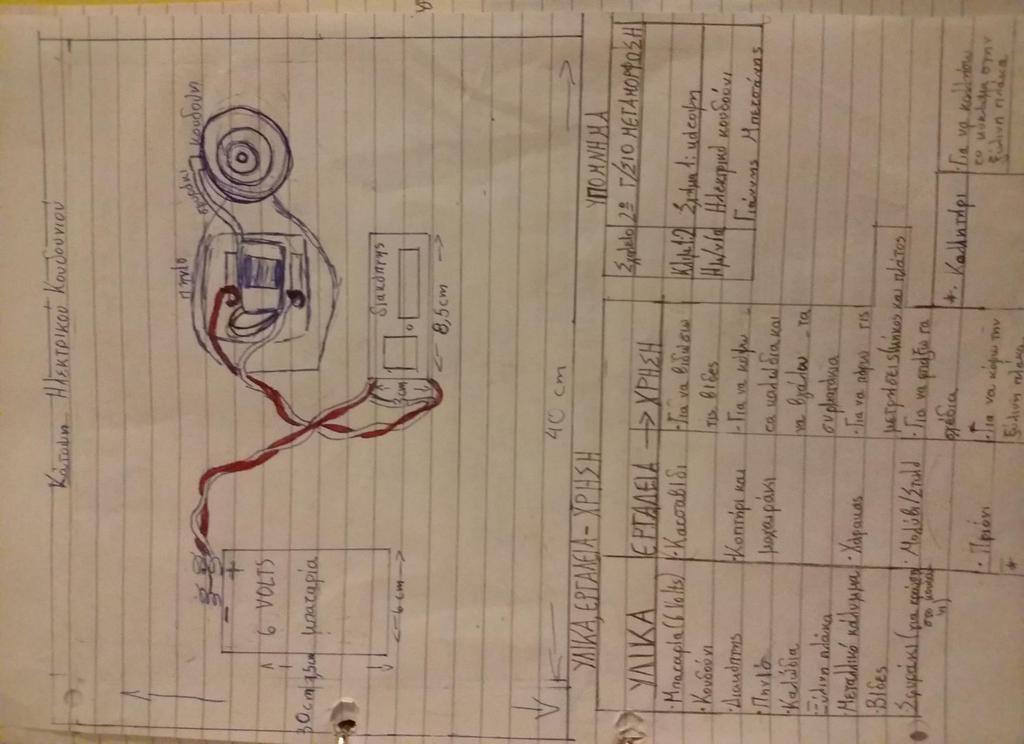 Κάτοψη Ηλεκτρικού Κουδουνιού
Πηνίο
κουδούνι
διακόπτης
8,5cm
6 VOLTS
μπαταρία
+
-
6cm
30cm
40 cm
ΥΛΙΚΑ, ΕΡΓΑΛΕΙΑ - ΧΡΗΣΗ
ΥΛΙΚΑ
· Μπαταρία (6 Volts)
· Κουδούνι
· Διακόπτης
· Πηνίο
· Καλώδια
· Ξύλινη πλάκα
· Μεταλλικό κάλυμμα
· Βίδες
ΕΡΓΑΛΕΙΑ → ΧΡΗΣΗ
· Κατσαβίδι
· Για να βιδώσω
τις βίδες
· Κοπτήρι και
μαχαιράκι
· Για να κόψω
τα καλώδια και
να βγάλω τα
συρματάκια
· Χάρακας
· Για να πάρω τις
μετρήσεις μήκος και πλάτος
· Μολύβι/Στυλό
· Για να φτιάξω τα
σχέδια
· Πριόνι
· Για να κόψω την
ξύλινη πλάκα
* · Κολλητήρι
· Για να κολλήσω
το κύκλωμα στην
ξύλινη πλάκα
ΥΠΟΜΝΗΜΑ
Σχολείο
2º Γ/ΣΙΟ ΜΕΤΑΜΟΡΦΩΣΗ
Κλίμ: 1:2
Σχήμα 1: κάτοψη
Ημ/νία
Ηλεκτρικό κουδούνι
Γιάννης